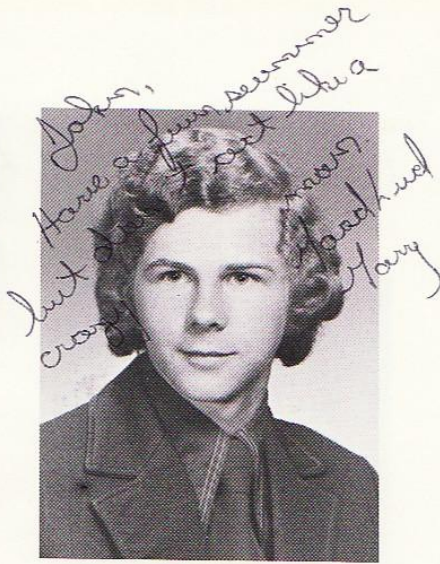 John,
Have a fun summer
but don't root like a
crazy man.
Good luck
Gary